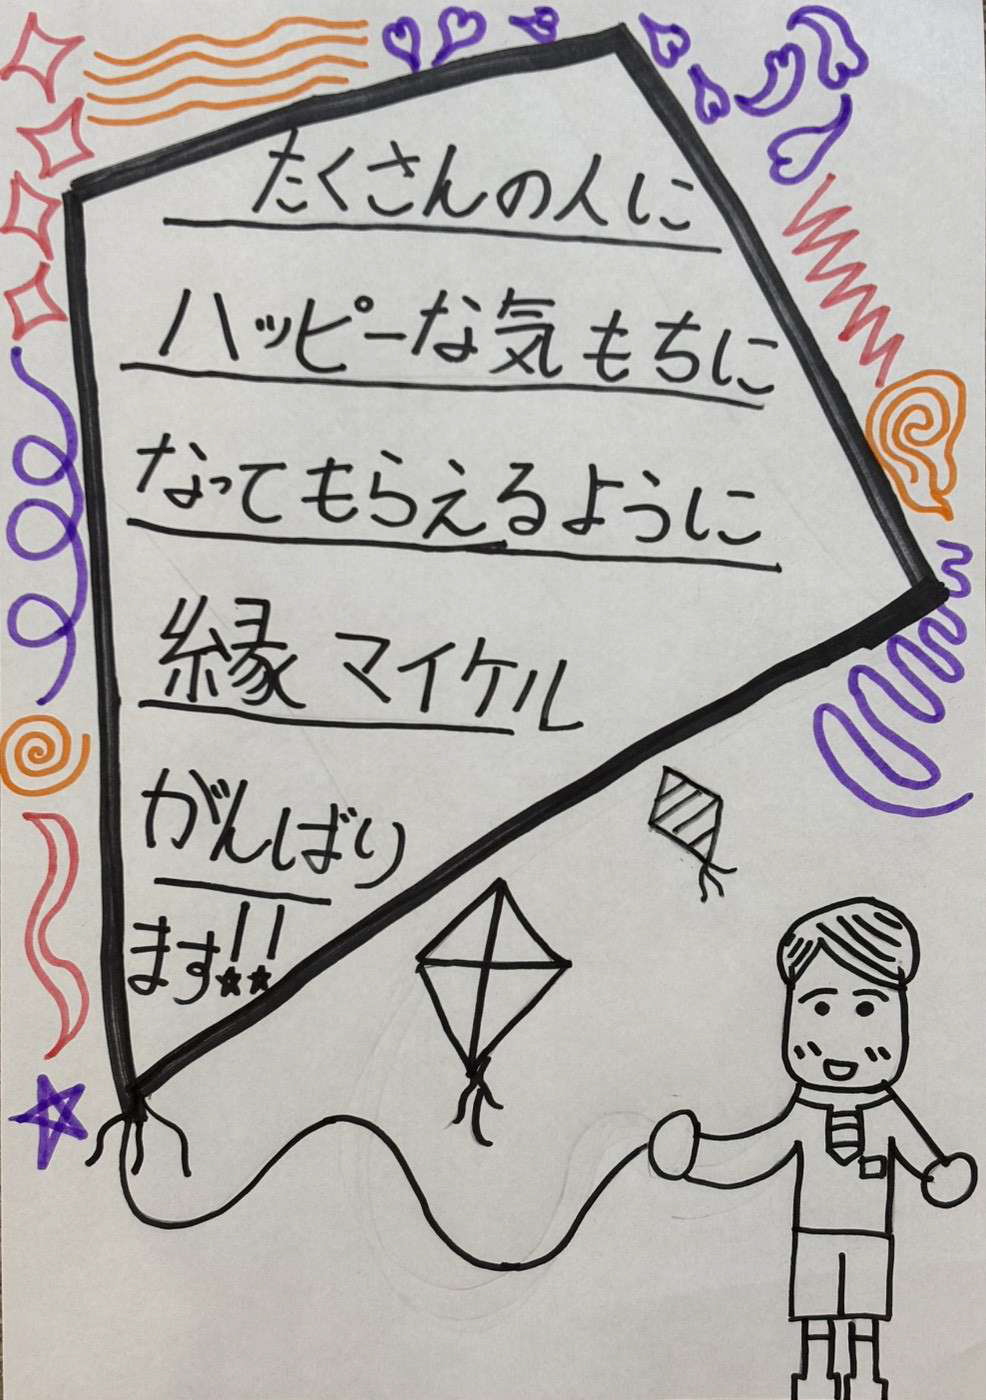 たくさんの人に
ハッピーな気もちに
なってもらえるように
縁マイケル
がんばり
ます!!